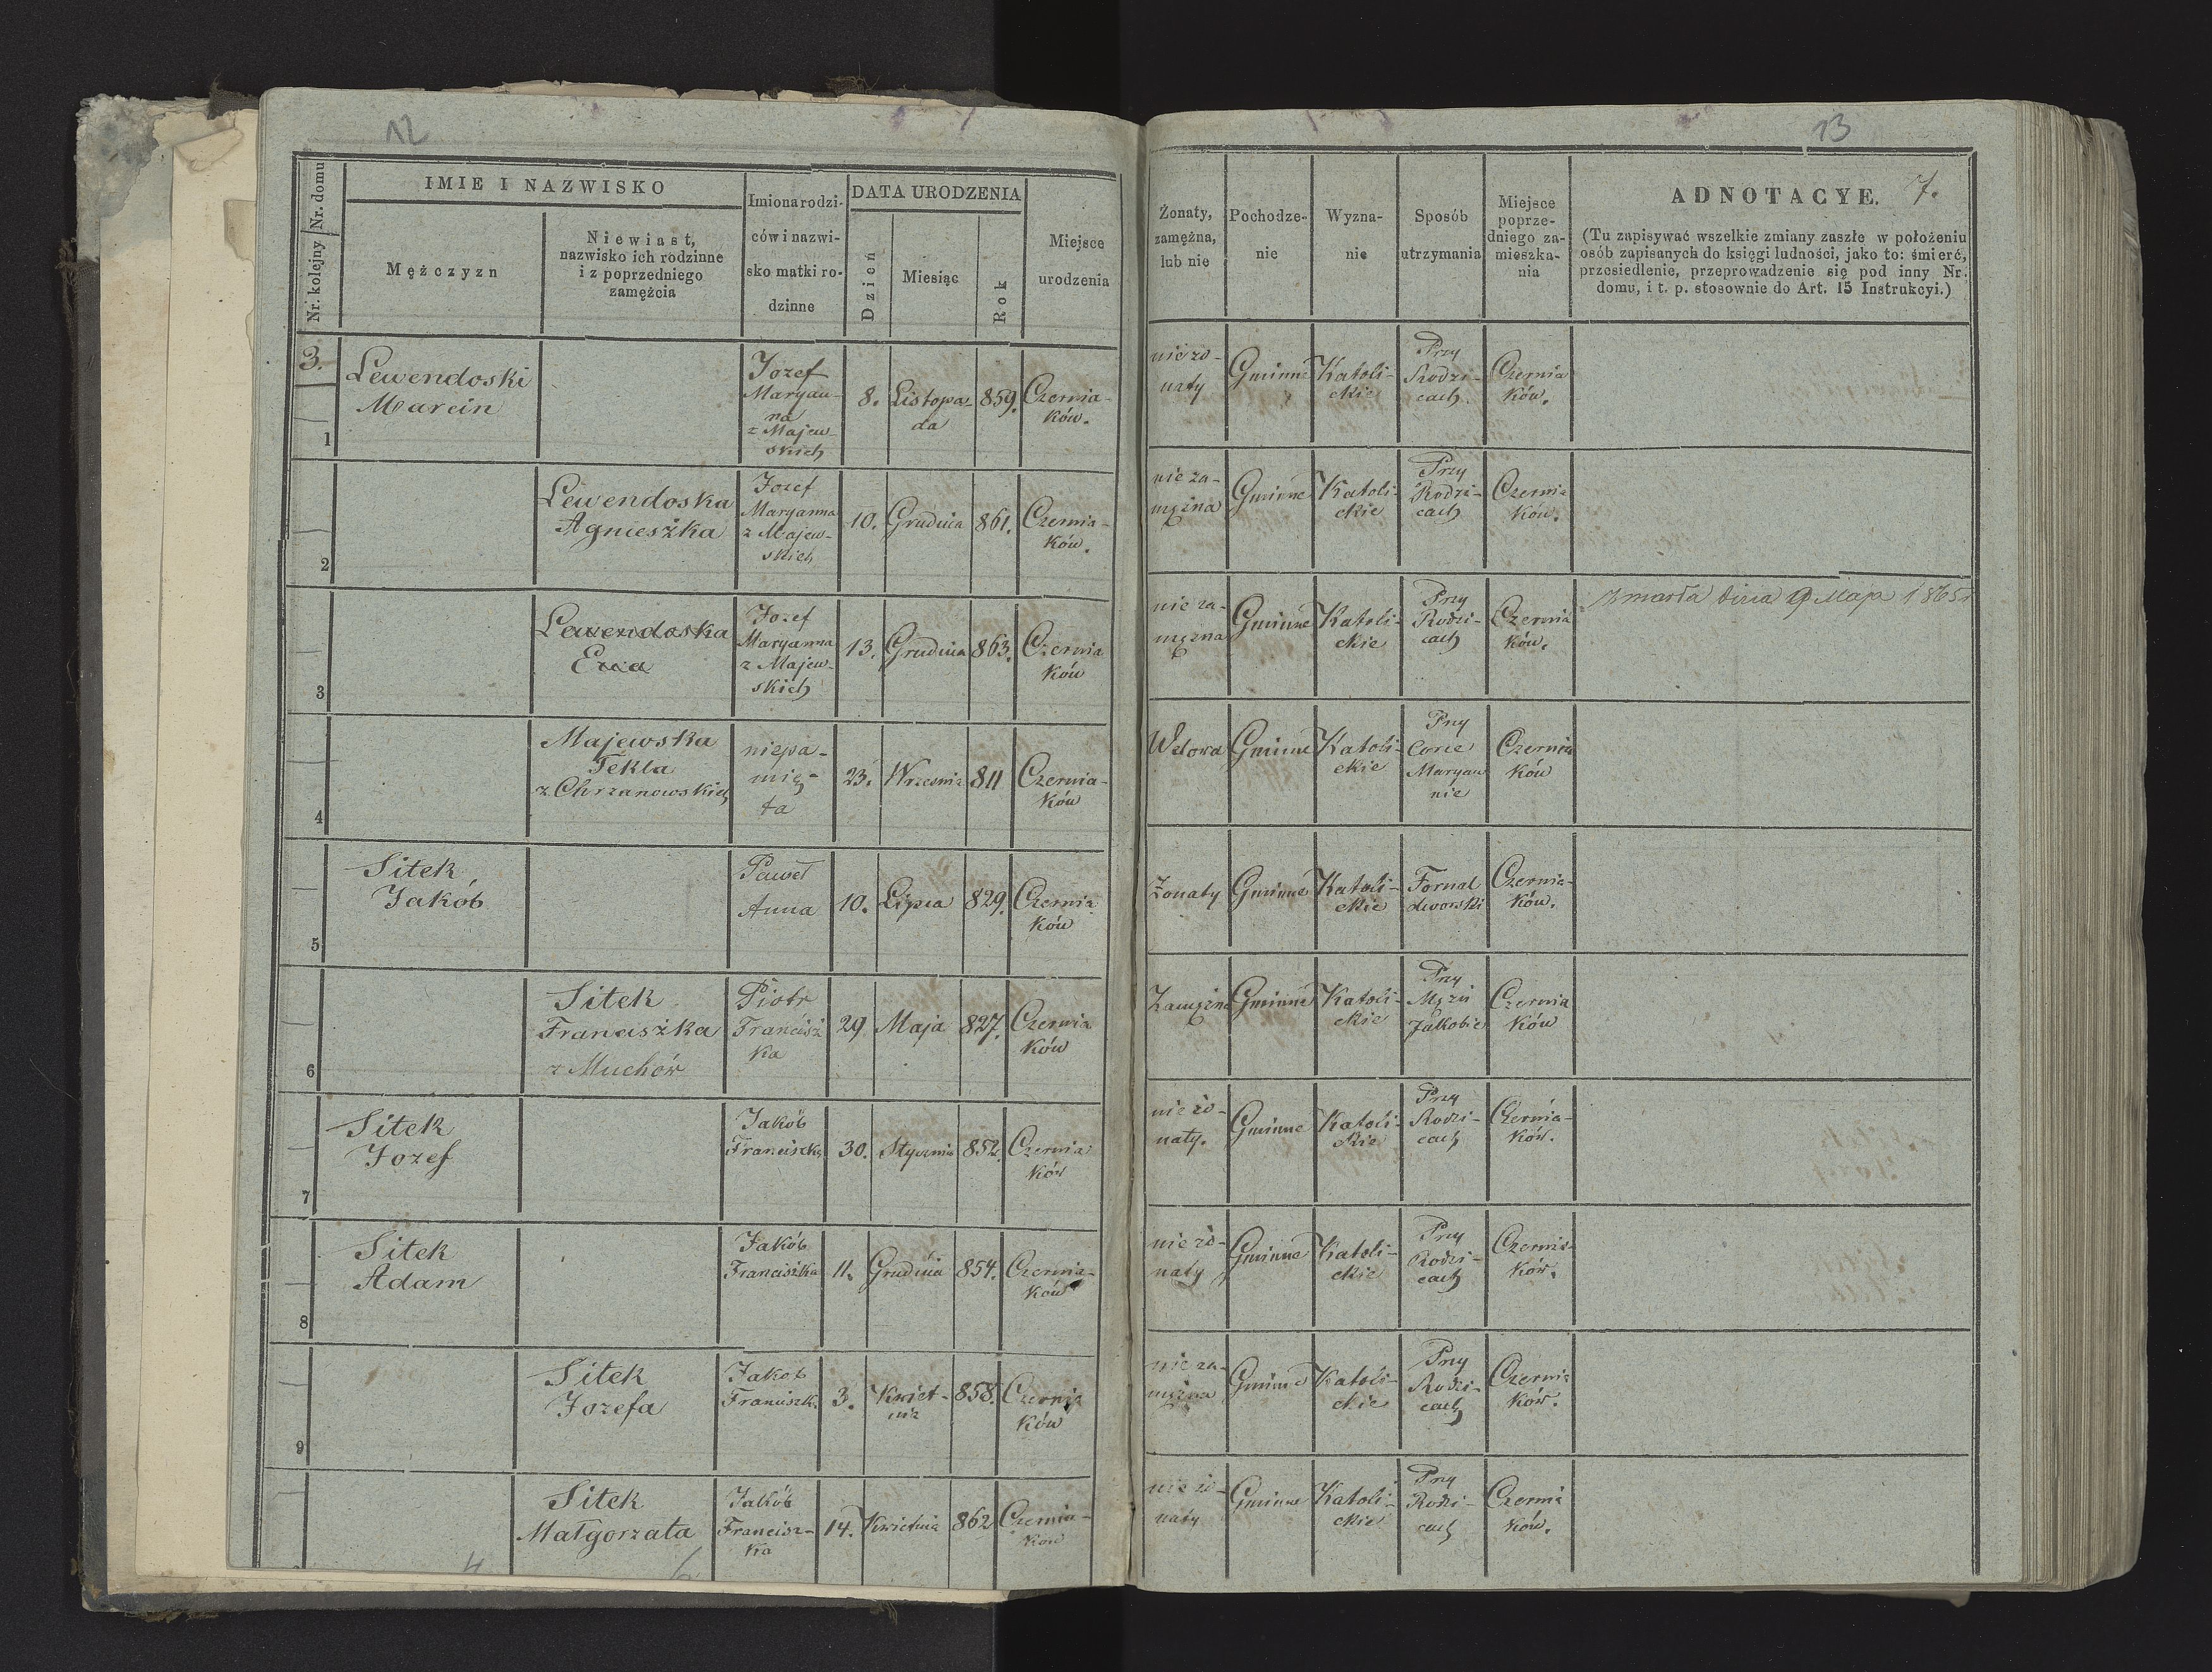 12
Nr. kolejny Nr. domu
IMIE I NAZWISKO
Mężczyzn
Niewiast,
nazwisko ich rodzinne
i z poprzedniego
zamężcia
Imiona rodzi-
ców i nazwi-
sko matki ro-
dzinne
DATA URODZENIA
Dzień
Miesiąc
Rok
Miejsce
urodzenia
3.
1
Lewendoski
Marcin
Jozef
Maryan-
na
z Majew-
skich
8.
Listopa
da
859.
Czernia-
ków.
2
Lewendoska
Agnieszka
Jozef
Maryanna
z Majew-
skich
10.
Grudnia
861.
Czernia-
ków.
3
Lewendoska
Ewa
Jozef
Maryanna
z Majew-
skich
13.
Grudnia
863.
Czernia
ków
4
Majewska
Tekla
z Chrzanowskich
niepa-
mię-
ta
23.
Wrzesnia
811
Czernia-
ków
5
Sitek
Jakób
Paweł
Anna
10.
Lipca
829.
Czernia
ków
6
Sitek
Franciszka
z Muchów
Piotr
Francisz
ka
29
Maja
827.
Czernia
ków
7
Sitek
Jozef
Jakób
Franciszka
30.
Stycznia
852.
Czernia
ków
8
Sitek
Adam
Jakób
Franciszka
11.
Grudnia
854.
Czernia-
ków
9
Sitek
Jozefa
Jakob
Franciszk.
3.
Kwiet-
nia
858.
Czernia
ków
Sitek
Małgorzata
Jakób
Francisz-
ka
14.
Kwietnia
862
Czernia-
ków
13
Żonaty,
zamężna,
lub nie
Pochodze-
nie
Wyzna-
nie
Sposób
utrzymania
Miejsce
poprze-
dniego za-
mieszka-
nia
ADNOTACYE. 7.
(Tu zapisywać wszelkie zmiany zaszłe w położeniu
osób zapisanych do księgi ludności, jako to: śmierć,
przesiedlenie, przeprowadzenie się pod inny Nr.
domu, i t. p. stosownie do Art. 15 Instrukcyi.)
nie żo-
naty
Gminne
Katoli-
ckie
Przy
Rodzi-
cach
Czernia
ków.
nie za-
mężna
Gminne
Katoli-
ckie
Przy
Rodzi-
cach
Czernia
ków.
nie za-
mężna
Gminne
Katoli-
ckie
Przy
Rodzi-
cach
Czernia
ków.
Zmarła dnia 9 Maja 1865r
Wdowa
Gminne
Katoli-
ckie
Przy
Corce
Maryan
nie
Czernia
ków
Żonaty
Gminne
Katoli-
ckie
Fornal
dworski
Czernia-
ków.
Zamężna
Gminne
Katoli-
ckie
Przy
Mężu
Jakobie
Czernia
ków
nie żo-
naty.
Gminne
Katoli-
ckie
Przy
Rodzi-
cach
Czernia-
ków.
nie żo-
naty
Gminne
Katoli-
ckie
Przy
Rodzi-
cach
Czernia-
ków.
nie za-
mężna
Gminne
Katoli-
ckie
Przy
Rodzi-
cach
Czernia
ków.
nie żo-
naty
Gminne
Katoli-
ckie
Przy
Rodzi-
cach
Czernia
ków.
4
6